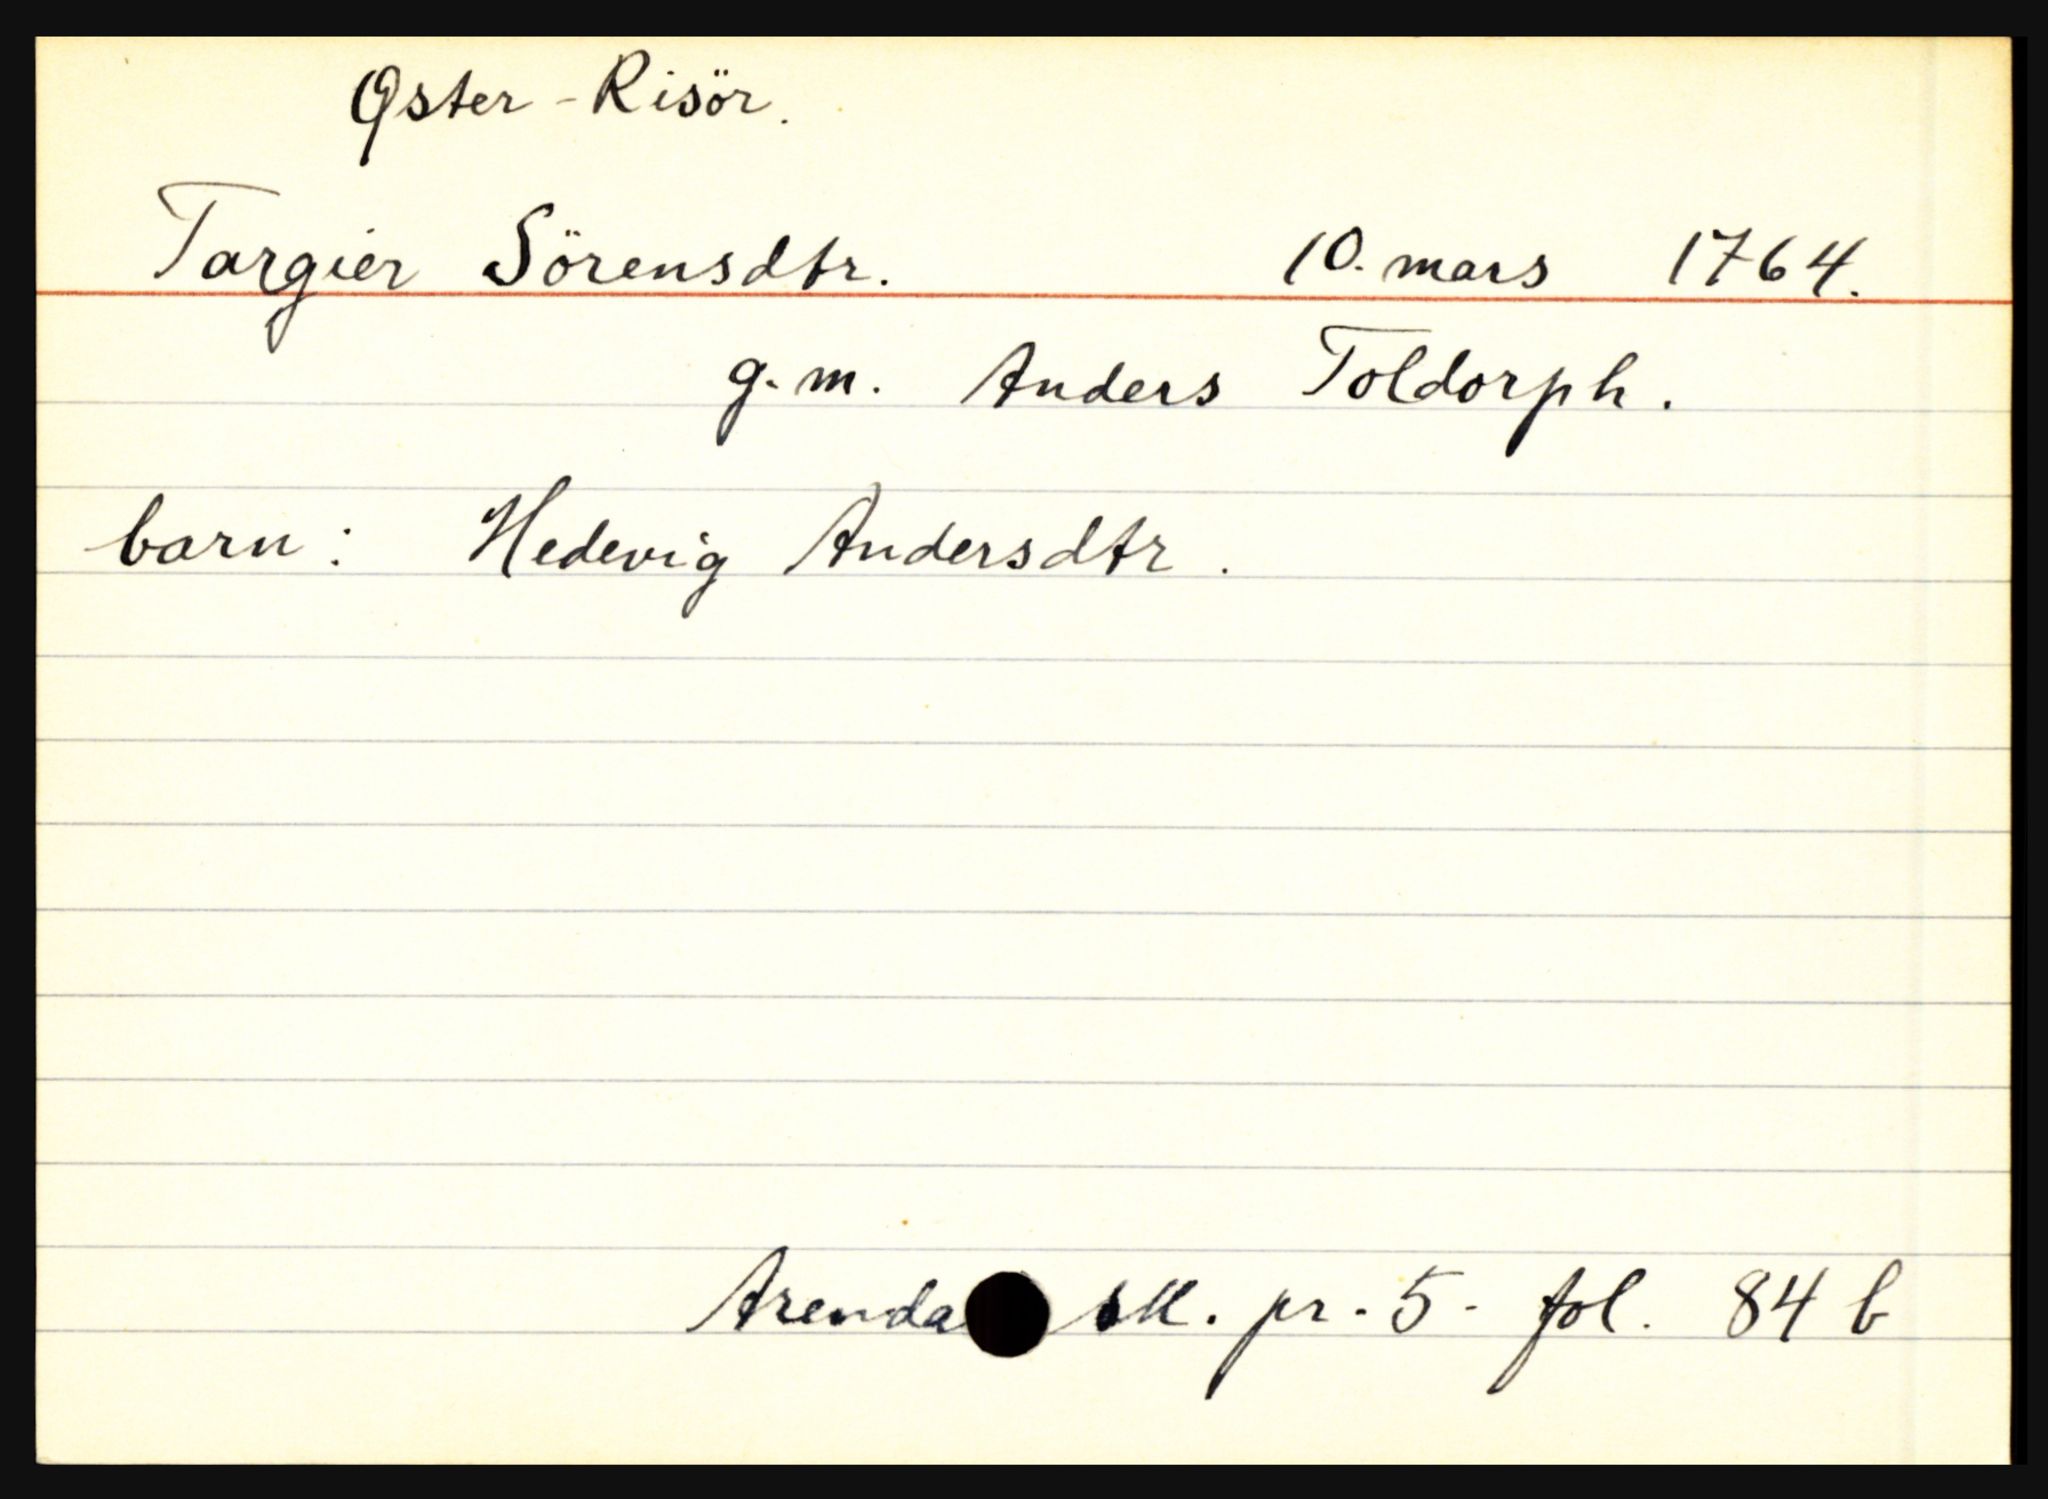 Øster-Risör.
Targier Sörensdtr. 10. mars 1764.
g.m. Anders Toldorph.
barn: Hedevig Andersdtr.
Arenda sk. pr. 5 - fol. 84 b